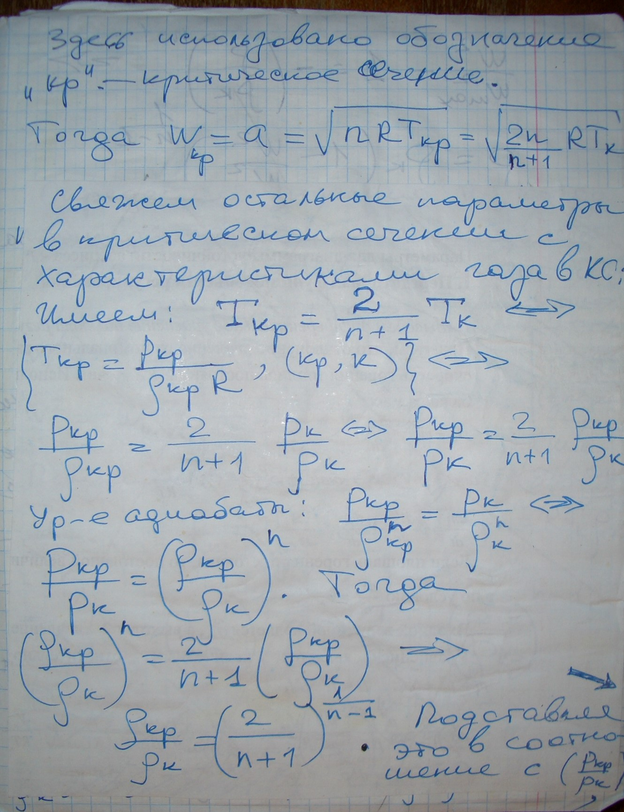 Здесь использовано обозначение
„кр". — критическое сечение.
Тогда W_кр = a = √(nRT_кр) = √(2n/(n+1) RT_к
Свяжем остальные параметры
в критическом сечении с
характеристиками газа в КС:
Имеем: T_кр = 2/(n+1) T_к ⇔
{T_кр = p_кр/(ρ_кр R), (кр, к)} ⇔
p_кр/ρ_кр = 2/(n+1) p_к/ρ_к ⇔ p_кр/p_к = 2/(n+1) ρ_кр/ρ_к
Ур-е адиабаты: p_кр/ρ_кр^n = p_к/ρ_к^n ⇔
p_кр/p_к = (ρ_кр/ρ_к)^n. Тогда
(ρ_кр/ρ_к)^n = 2/(n+1) (ρ_кр/ρ_к) ⇒
ρ_кр/ρ_к = (2/(n+1))^(1/(n-1)). Подставляя
это в соотно
шение с (p_кр/p_к)